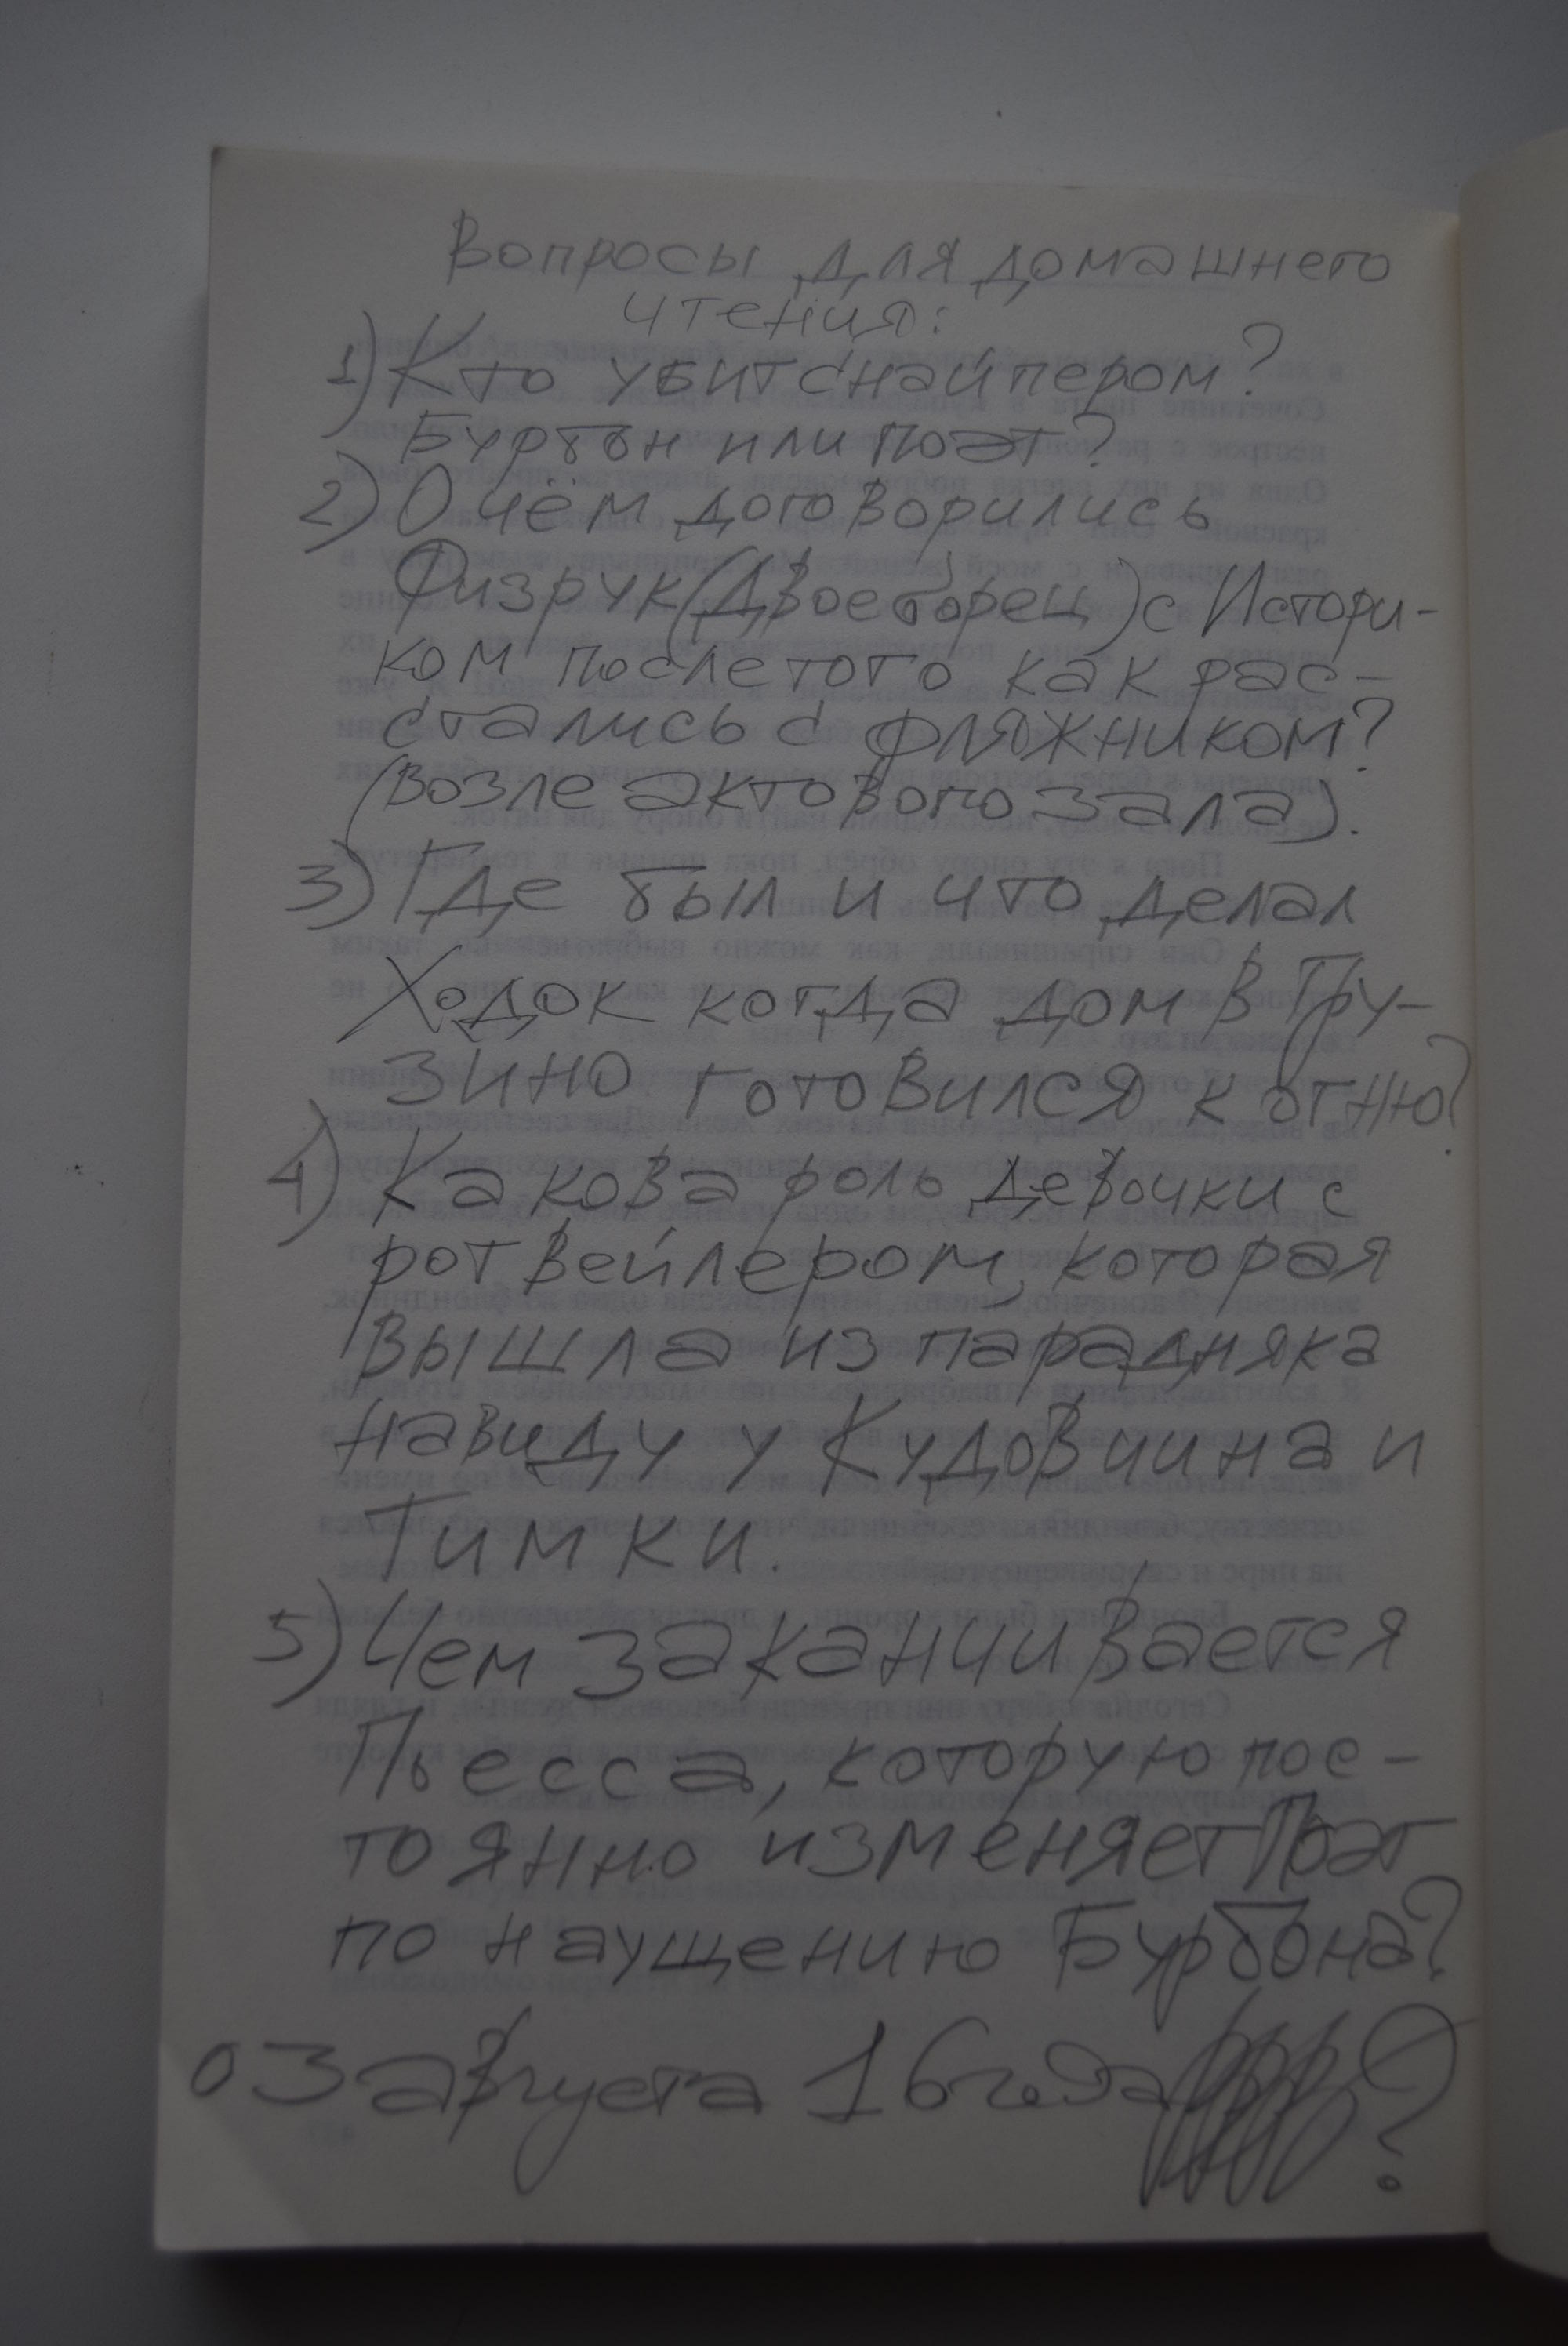 Вопросы для домашнего
чтения:
1) Кто убит снайпером?
Бурбон или поэт?
2) О чём договорились
Физрук (Двоеборец) с Истори-
ком после того как рас-
стались с фляжником?
(возле актового зала).
3) Где был и что делал
Ходок когда дом в Гру-
зино готовился к огню?
4) Какова роль девочки с
ротвейлером, которая
вышла из парадняка
на виду у Кудовчина и
Тимки.
5) Чем заканчивается
Пьесса, которую пос-
тоянно изменяет Поэт
по наущению Бурбона?
03 августа 16 года ?